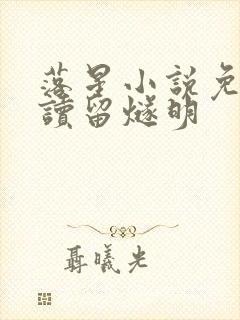 落星小説免
讀留燧明
聶曦光